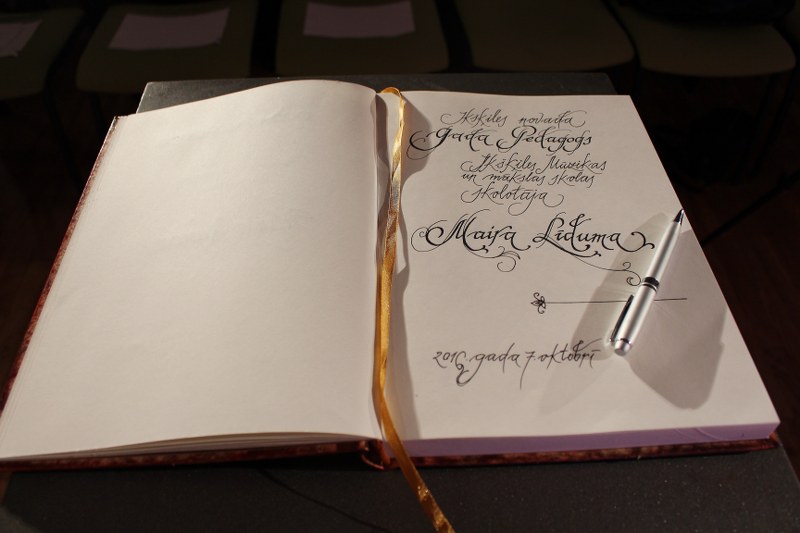 Ikšķiles novada
Gada Pedagogs
Ikšķiles Mūzikas
un mākslas skolas
skolotāja
Maija Līduma
2016. gada 7. oktobrī